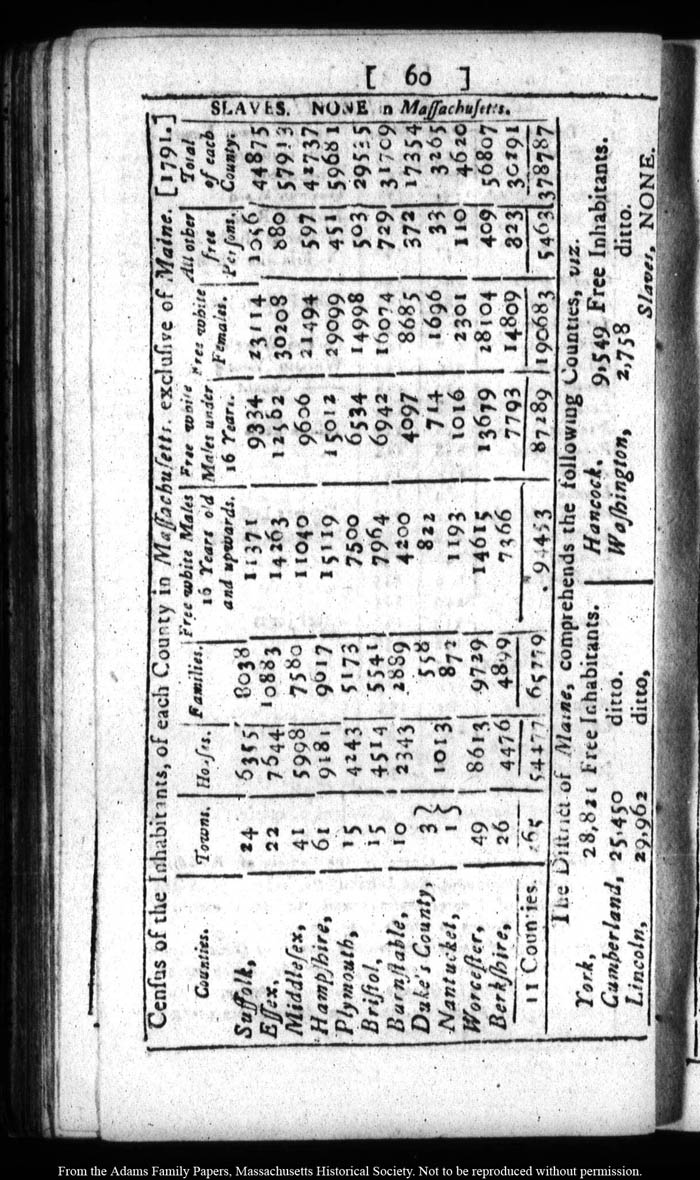 [ 60 ]
Cenſus of the Inhabitants, of each County in Maſſachuſetts. excluſive of Maine. [1791.]
Counties. Towns. Houſes. Families. Free white Males 16 Years old and upwards. Free white Males under 16 Years. Free white Females. All other free Perſons. Total of each County. SLAVES. NONE in Maſſachuſetts.
Suffolk, 24 6355 8038 11371 9334 23114 1056 44875
Eſſex, 22 7644 10883 14263 12562 30208 880 57913
Middleſex, 41 5998 7580 11040 9606 21494 597 42737
Hampſhire, 61 9181 9617 15119 15012 29099 451 59681
Plymouth, 15 4243 5173 7500 6534 14998 503 29535
Briſtol, 15 4514 5541 7964 6942 16074 729 31709
Barnſtable, 10 2343 2889 4200 4097 8685 372 17354
Duke's County, 3 } 1013 558 822 714 1696 33 3265
Nantucket, 1 } 872 1193 1016 2301 110 4620
Worceſter, 49 8613 9729 14615 13679 28104 409 56807
Berkſhire, 26 4476 4899 7366 7793 14809 823 30291
11 Counties. 265 54377 65779 94453 87289 190683 5463 378787
The Diſtrict of Maine, comprehends the following Counties, viz.
York, 28,821 Free Inhabitants. Hancock, 9,549 Free Inhabitants.
Cumberland, 25,450 ditto. Waſhington, 2,758 ditto.
Lincoln, 29,962 ditto, Slaves, NONE.
From the Adams Family Papers, Massachusetts Historical Society. Not to be reproduced without permission.